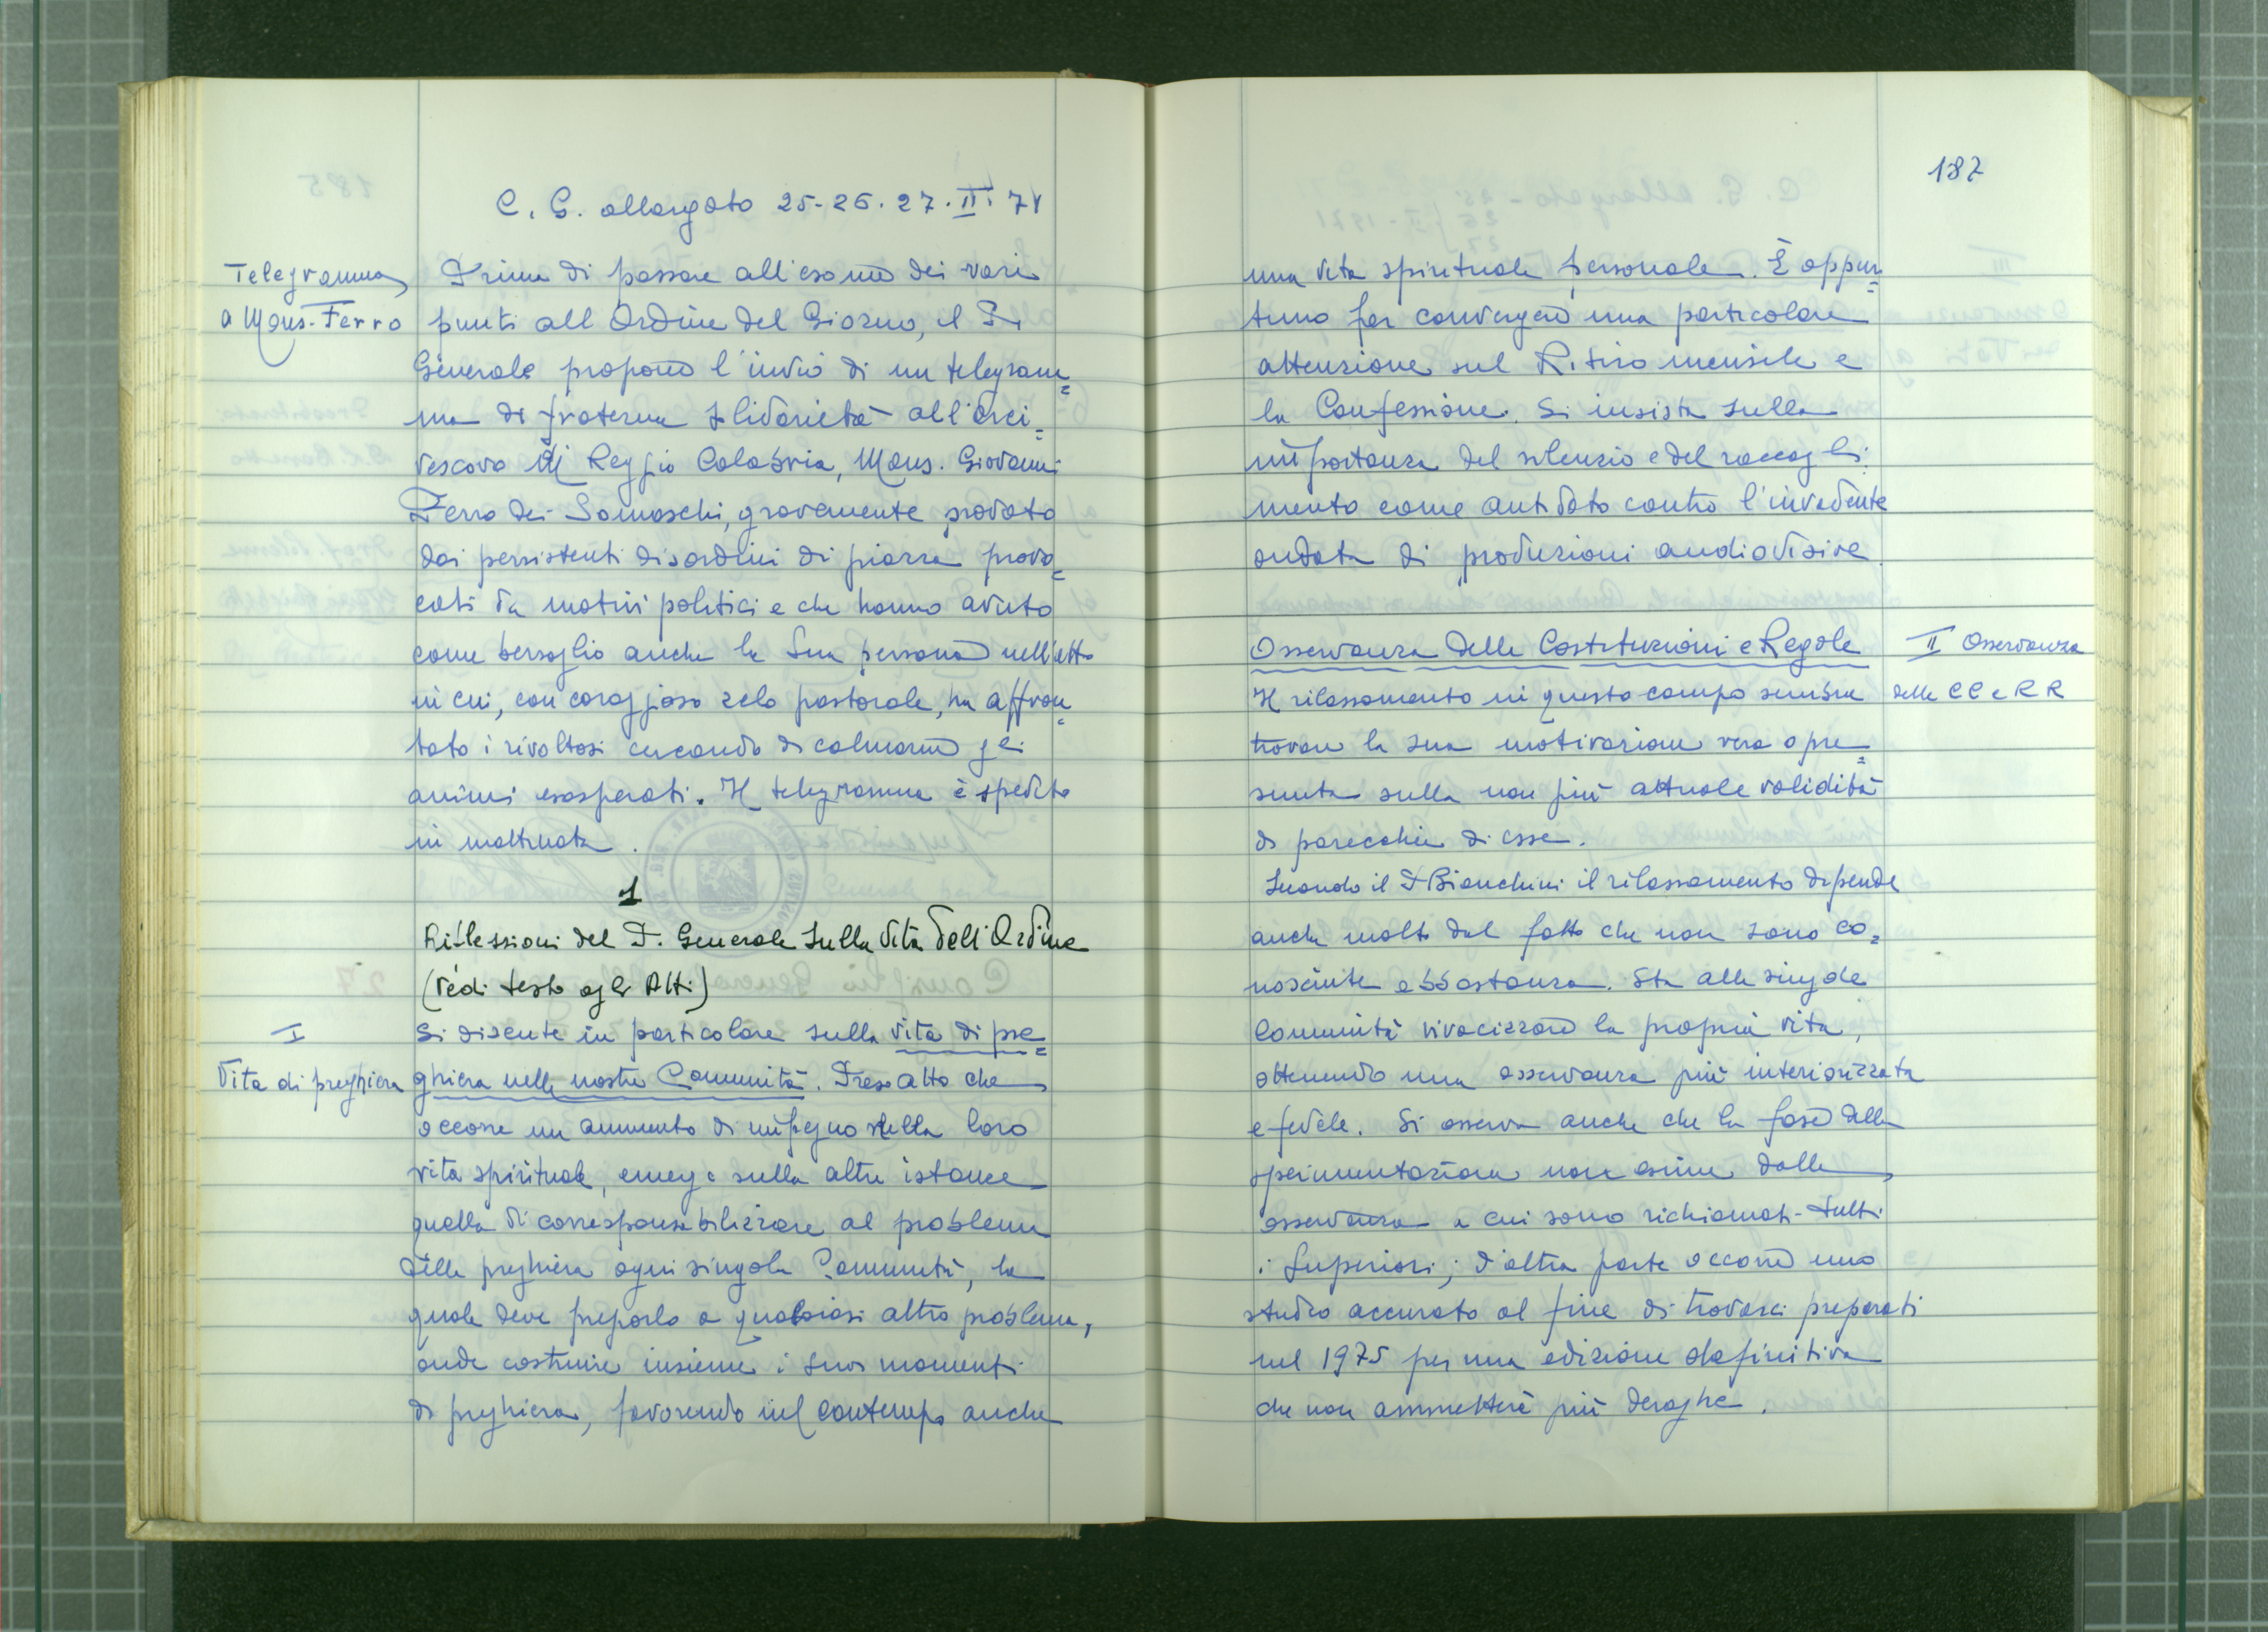 C. G. allargato 25-26.27.II.71
Telegramma
a Mons. Ferro
Prima di passare all'esame dei vari
punti all'Ordine del Giorno, il P.
Generale propone l'invio di un telegram=
ma di fraterna solidarietà all'Arci=
vescovo di Reggio Calabria, Mons. Giovanni
Ferro dei Somaschi, gravemente provato
dai persistenti disordini di piazza provo=
cati da motivi politici e che hanno avuto
come bersaglio anche la Sua persona nell'atto
in cui, con coraggioso zelo pastorale, ha affron=
tato i rivoltosi cercando di calmare gli
animi esasperati. Il telegramma è spedito
in mattinata.
1
Riflessioni del P. Generale sulla Vita dell'Ordine
(vedi testo agli Atti)
I
Vita di preghiera
Si discute in particolare sulla vita di pre=
ghiera nelle nostre Comunità. Preso atto che
occorre un aumento di impegno nella loro
vita spirituale, emerge sulle altre istanze
quella di corresponsabilizzare al problema
della preghiera ogni singola Comunità, la
quale deve preporlo a qualsiasi altro problema,
onde costruire insieme i suoi momenti
di preghiera, favorendo nel contempo anche
187
una vita spirituale personale. È oppor=
tuno far convergere una particolare
attenzione sul Ritiro mensile e
la Confessione. Si insiste sulla
importanza del silenzio e del raccogli=
mento come antidoto contro l'invadente
ondata di produzioni audiovisive.
Osservanza delle Costituzioni e Regole
II Osservanza
delle CC e RR
Il rilassamento in questo campo sembra
trovare la sua motivazione vera o pre=
sunta sulla non più attuale validità
di parecchie di esse.
Secondo il P. Bianchini il rilassamento dipende
anche molto dal fatto che non sono co=
nosciute abbastanza. Sta alle singole
Comunità vivacizzare la propria vita,
ottenendo una osservanza più interiorizzata
e fedele. Si osserva anche che la fase della
sperimentazione non esime dalla
osservanza a cui sono richiamati tutti
i Superiori; d'altra parte occorre uno
studio accurato al fine di trovarci preparati
nel 1975 per una edizione definitiva
che non ammetterà più deroghe.